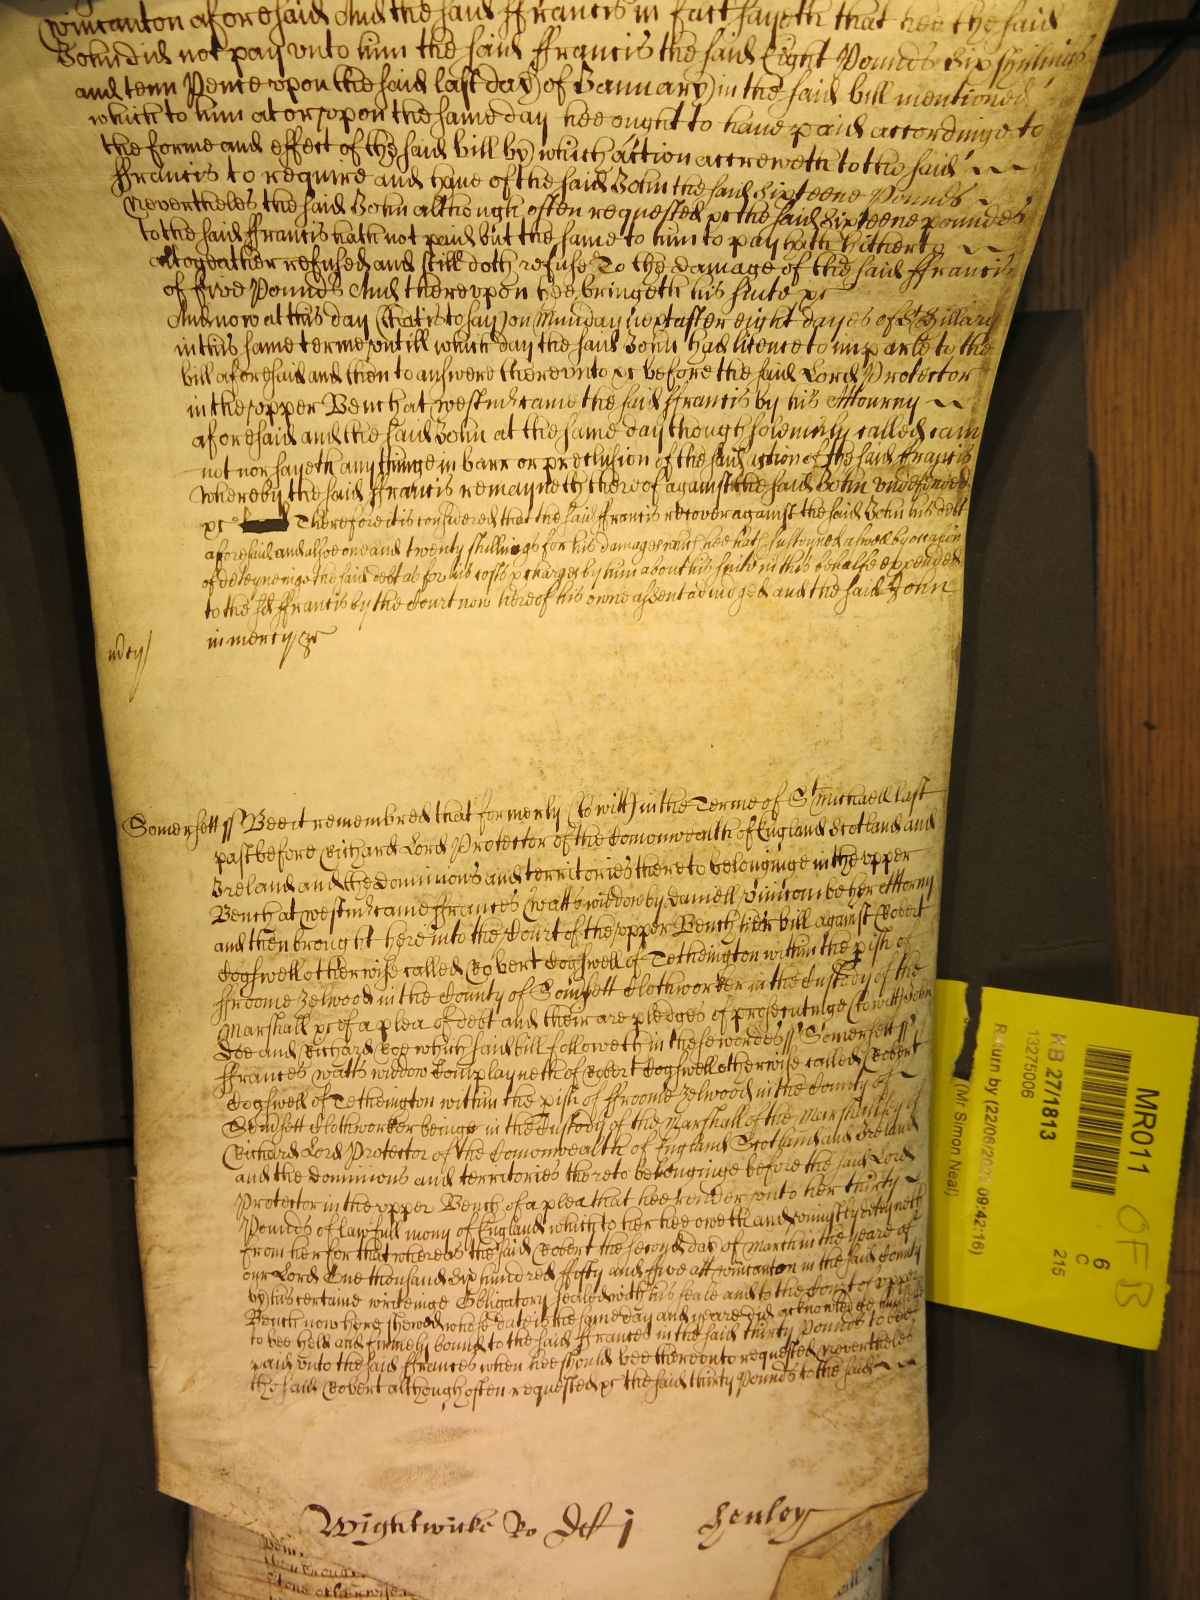 Wincanton aforesaid And the said Ffrancis in fact sayeth that hee the said
John did not pay vnto him the said Ffrancis the said Eight Pounds Six shillings
and tenn Pence vpon the said last day of January in the said bill mentioned
which to him at or vpon the same day hee ought to haue paid accordinge to
the forme and effect of the said bill by which action accreweth to the said
Ffrancis to require and haue of the said John the said Sixteene Pounds
Neverthelès the said John although often requested &c the said Sixteene poundes
to the said Ffrancis hath not paid but the same to him to pay hath hitherto
altogeather refused and still doth refuse To the damage of the said Ffrancis
of five Pounds And therevpon hee bringeth his suite &c
And now at this day (that is to say) on Munday next after eight dayes of St Hillary
in this same terme vntill which day the said John had licence to imparle to the
bill aforesaid and then to answere therevnto &c before the said Lord Protector
in the vpper Bench at Westmr came the said Ffrancis by his Attorney
aforesaid and the said John at the same day though solemnly called came
not nor sayeth any thinge in barr or preclusion of the said action of the said Ffrancis
Whereby the said Ffrancis remayneth thereof against the said John vndefended
&c Therefore it is considered that the said Ffrancis recover against the said John his debt
aforesaid and alsoe one and twenty shillings for his damages which hee hath susteyned aswell by occasion
of deteyneinge the said debt as for his costs & charges by him about his suite in this behalfe expended
to the sd Ffrancis by the Court now here of his owne assent adiudged and the said John
in mercy &c
mcy/
Somersett ss Bee it remembred that formerly (to witt) in the Terme of St Michaell last
past before Richard Lord Protector of the Comonwealth of England Scotland and
Ireland and the dominions and territories thereto belonginge in the vpper
Bench at Westmr came Ffrances Watts widdow by Daniell Vinicombe her Attorny
and then brought here into the Court of the vpper Bench her bill against Robert
Cogswell otherwise called Robert Cogswell of Tetherington within the pish of
Ffroome Zelwood in the County of Somsett Clothworker in the Custody of the
Marshall &c of a plea of debt and their are pledges of prosecutinge (to witt) John
Doe and Richard Roe which said bill followeth in these wordes ss Somersett ss
Ffrances Watts widdow Complayneth of Robert Cogswell otherwise called Robert
Cogswell of Tetherington within the pish of Ffroome Zelwood in the County of
Somsett Clothworker beinge in the Custody of the Marshall of the Marshallsey of
Richard Lord Protector of the Comonwealth of England Scotland and Ireland
and the dominions and territories thereto belonginge before the said Lord
Protector in the vpper Bench of a plea that hee render vnto her thirty
Pounds of lawfull mony of England which to her hee oweth and vniustly deteyneth
from her for that whereas the said Robert the second day of March in the yeare of
our Lord One thousand Six hundred ffifty and ffive att Wincanton in the said County
by his certaine writeinge Obligatory sealed with his seale and to the Court of vpper
Bench now here shewed whose date is the same day and yeare did acknowledge himselfe
to bee held and firmely bound to the said Ffrances in the said thirty Pounds to bee
paid vnto the said Ffrances when hee should bee therevnto requested Neverthelès
the said Robert although often requested &c the said thirty Pounds to the said
Wightwicke Ro Deb j Henley
MR011
6
C
215
KB 27/1813
13275006
Return by (22/06/20 09:42:16)
(Mr Simon Neal)
OF B